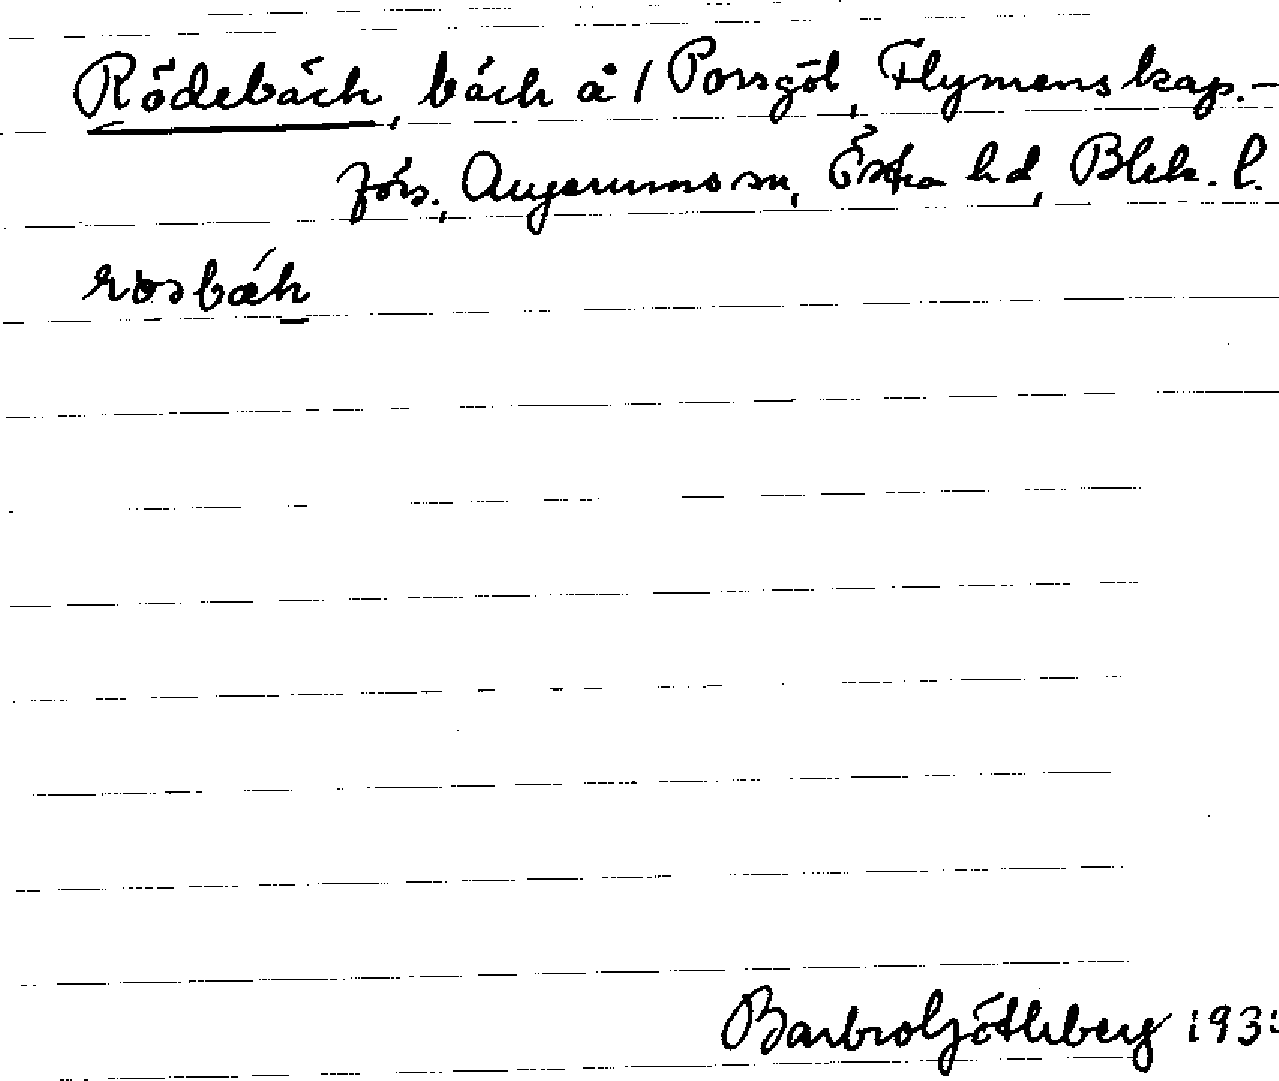 Rödebäck, bäck å 1 Porsgöl, Flymens kap.-
förs., Augerums sn, Östra hd, Blek. l.
Barbro Göthberg 193